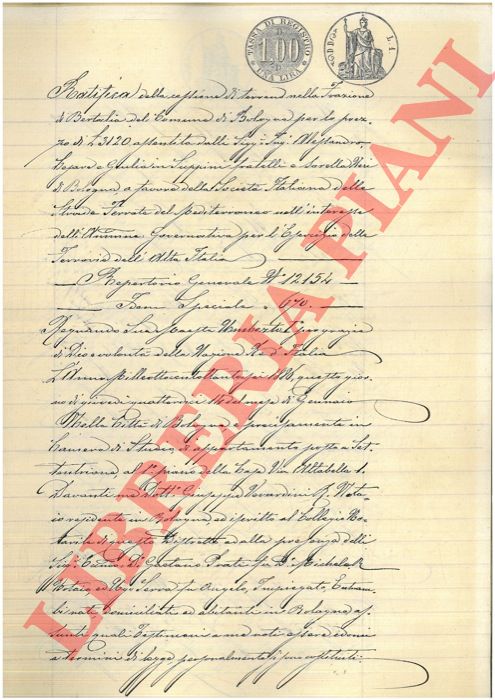 TASSA DI REGISTRO
1,00
UNA LIRA
L 1
Ratifica della cessione di terreni nella Frazione
di Bertalia del Comune di Bologna per lo prez-
zo di £ 3120 assentita dalli Sigi: Ingi: Alessandro,
Cesare e Giulia in Luppini fratelli e sorella Neri
di Bologna, a favore della Società Italiana delle
Strade Ferrate del Mediterraneo nell'interesse
dell'Amm.ne Governativa per l'Esercizio delle
Ferrovie dell'Alta Italia
Repertorio Generale N° 12154
Speciale 670.
Regnando Sua Maestà Umberto I° per grazia
di Dio e volontà della Nazione Re d'Italia
L'Anno Milleottocentottantasei 1886, questo gior-
no di giovedì quattordici del mese di Gennaio
Nella Città di Bologna e precisamente in
Camera di Studio appartamento posto a Set-
tentrione al 1° piano della Casa Via Altabella 1.
Davanti me Dott: Giuseppe Verardini Nota-
io residente in Bologna ed iscritto al Collegio No-
tarile di questo Distretto e alla presenza delli
Sigi: Gaetano fu Dr Michele
Notaio ed Serra fu Angelo, Impiegato, Entram-
bi nati, domiciliati ed abitanti in Bologna as-
sunti quali Testimoni a me noti ed idonei
a termini di legge personalmente si sono costituiti:
LIBRERIA PIANI